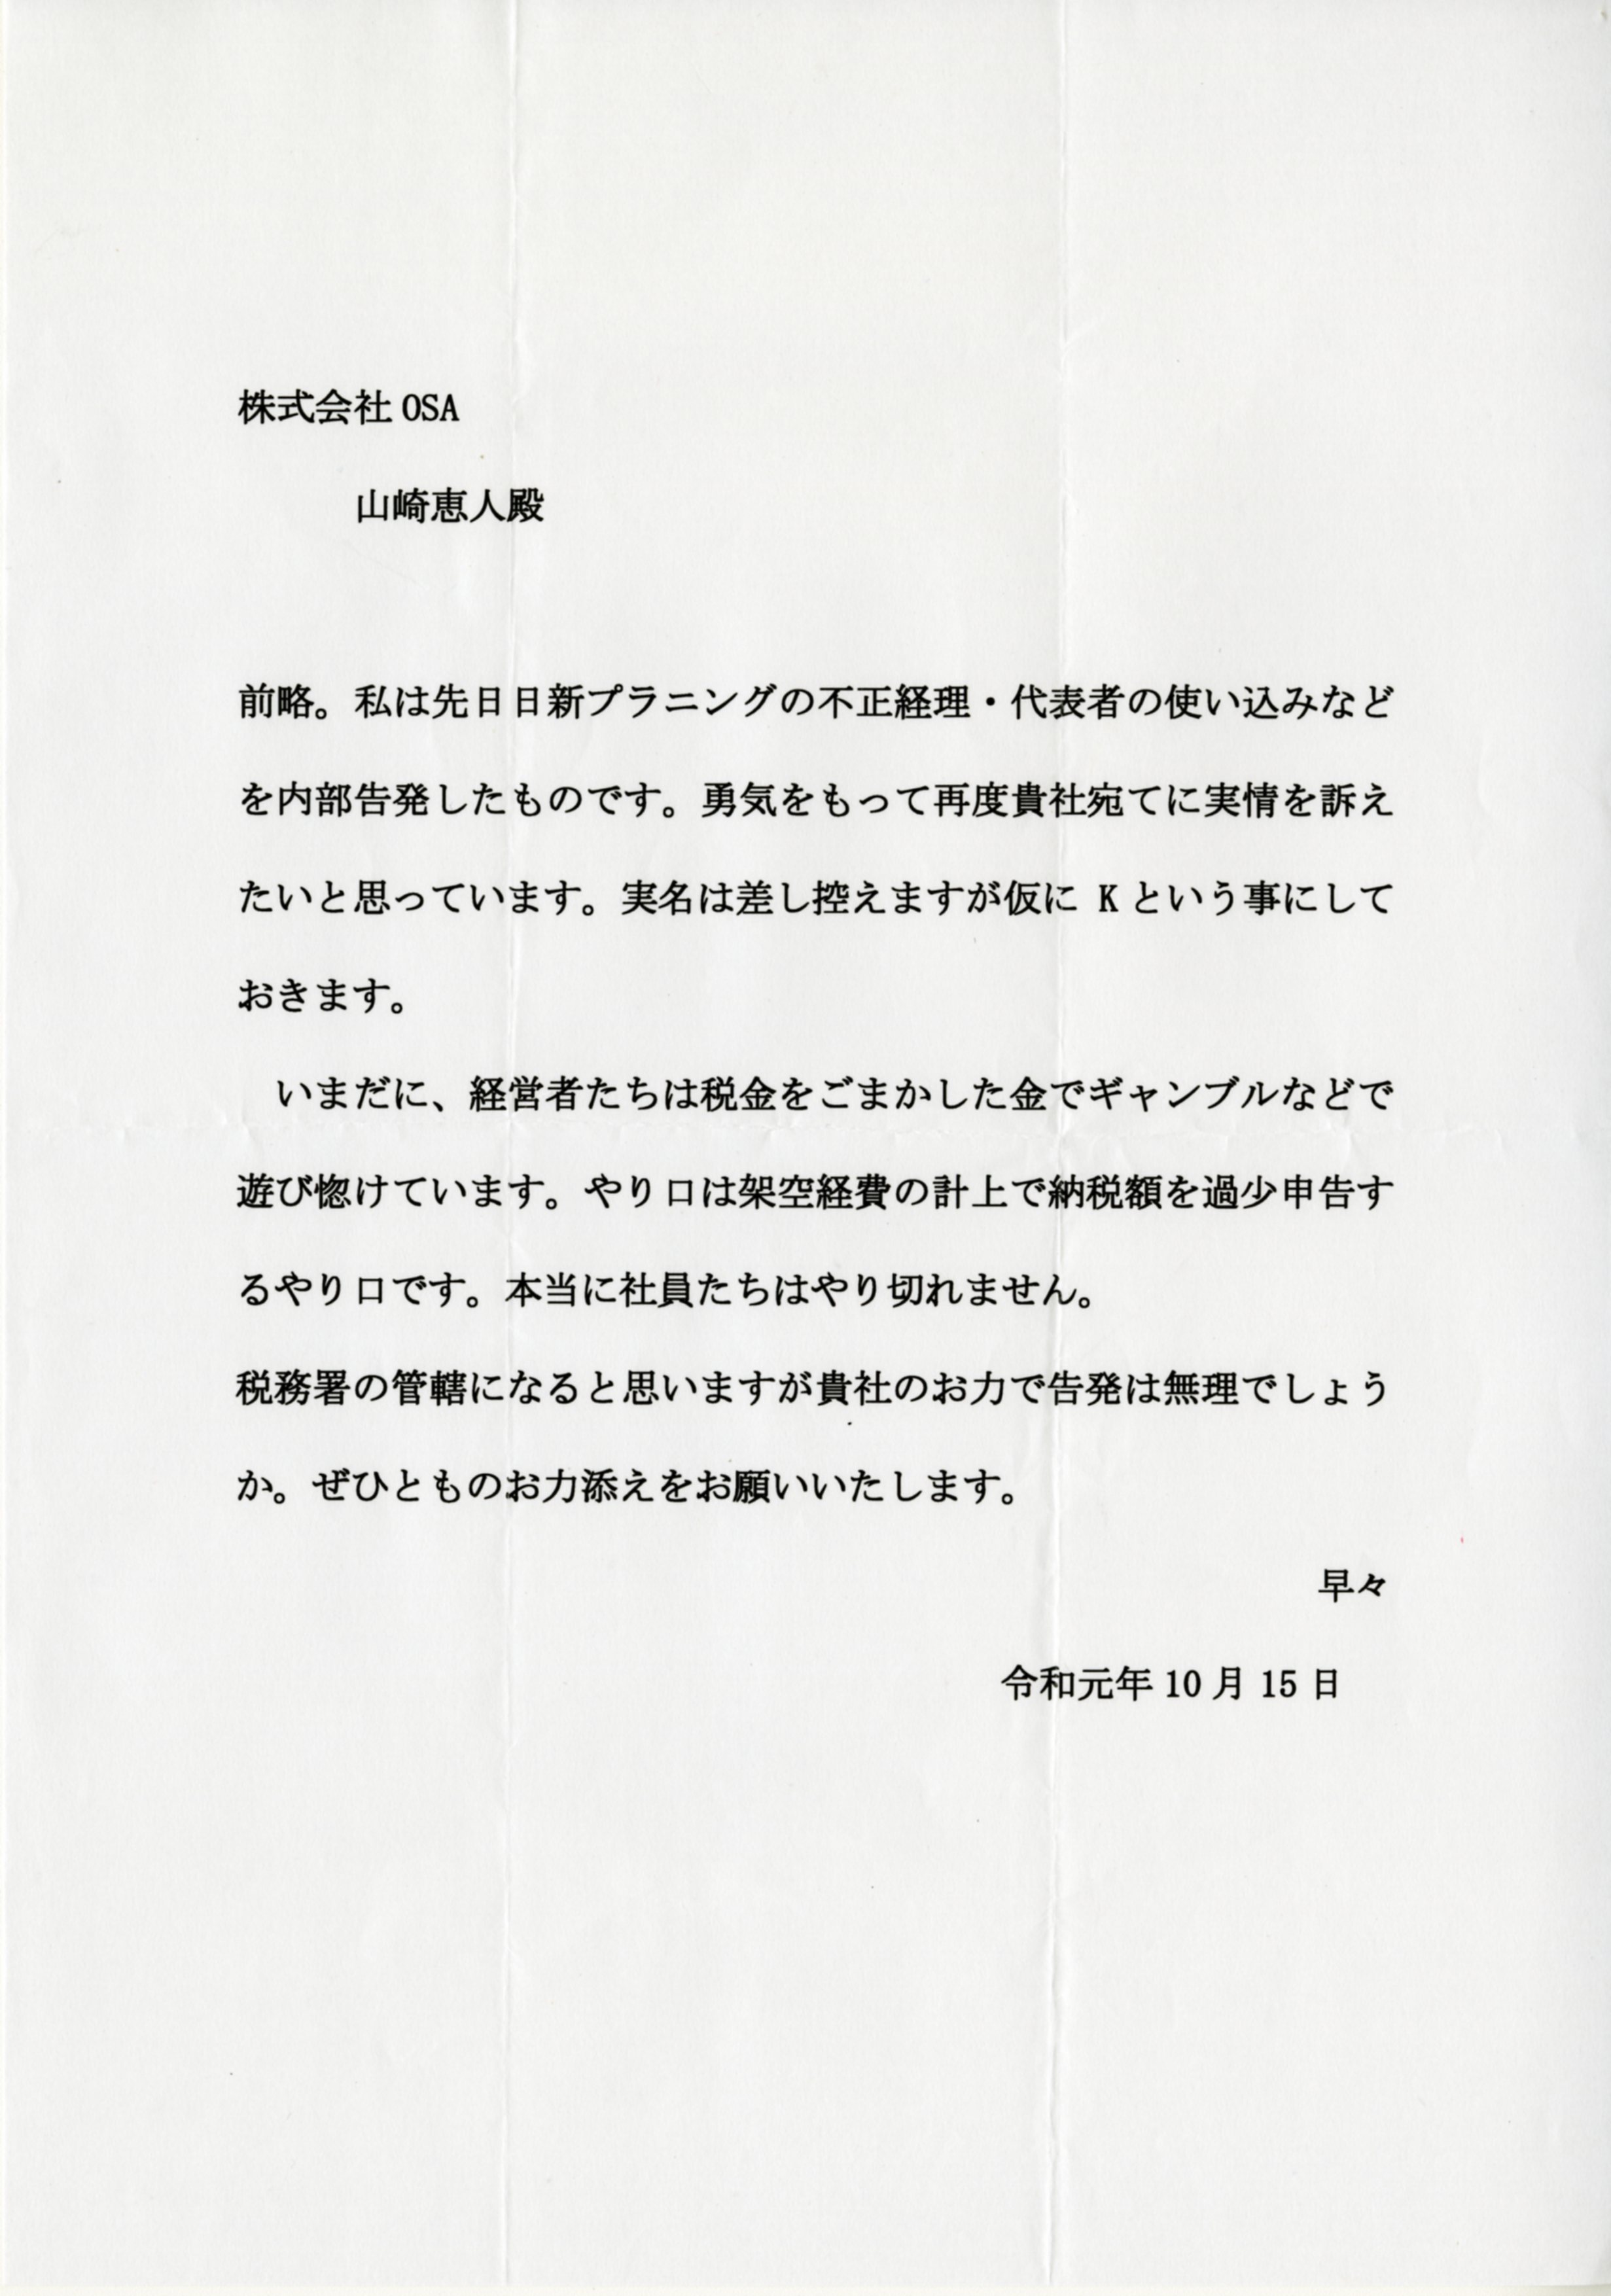 株式会社 OSA
山崎恵人殿
前略。私は先日日新プラニングの不正経理・代表者の使い込みなど
を内部告発したものです。勇気をもって再度貴社宛てに実情を訴え
たいと思っています。実名は差し控えますが仮に K という事にして
おきます。
いまだに、経営者たちは税金をごまかした金でギャンブルなどで
遊び惚けています。やり口は架空経費の計上で納税額を過少申告す
るやり口です。本当に社員たちはやり切れません。
税務署の管轄になると思いますが貴社のお力で告発は無理でしょう
か。ぜひとものお力添えをお願いいたします。
早々
令和元年 10 月 15 日